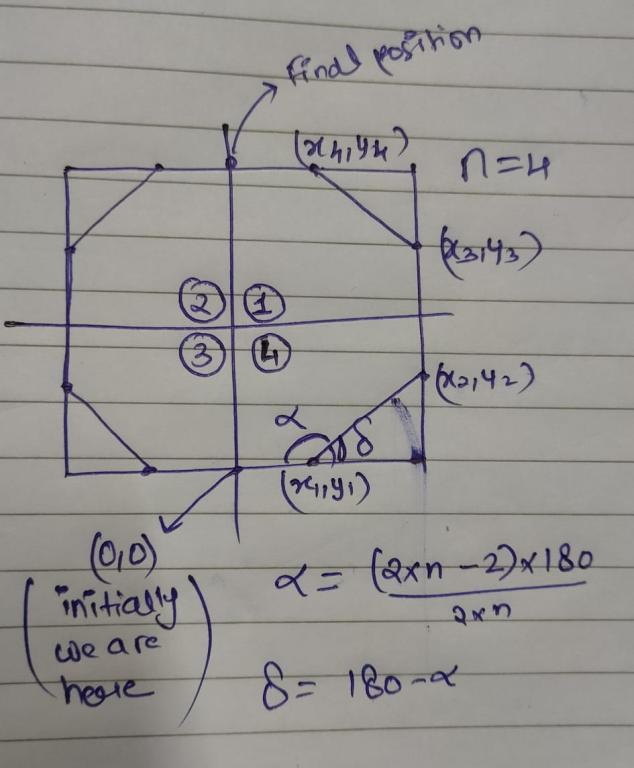 final position
(x4,y4)
n=4
(x3,y3)
2
1
3
4
(x2,y2)
α
δ
(x1,y1)
(0,0)
(initially
we are
here)
α = (2×n - 2)×180
2×n
δ = 180-α